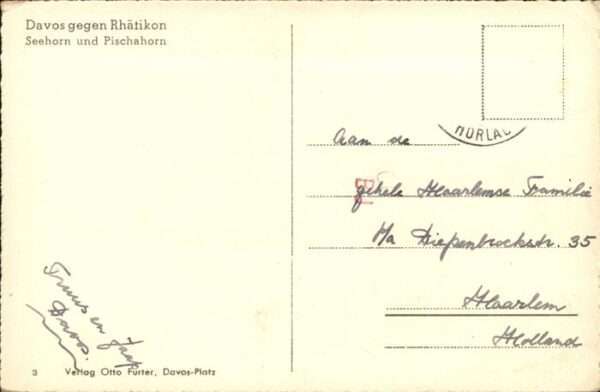 Davos gegen Rhätikon
Seehorn und Pischahorn
Aan de
gehele Haarlemse Familie
p/a Diepenbrockstr. 35
Haarlem
Holland
Truus en Jaap
Davos.
3 Verlag Otto Furter, Davos-Platz